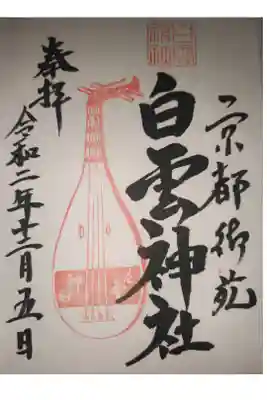 京都御苑
白雲神社
奉拝
令和二年十二月五日